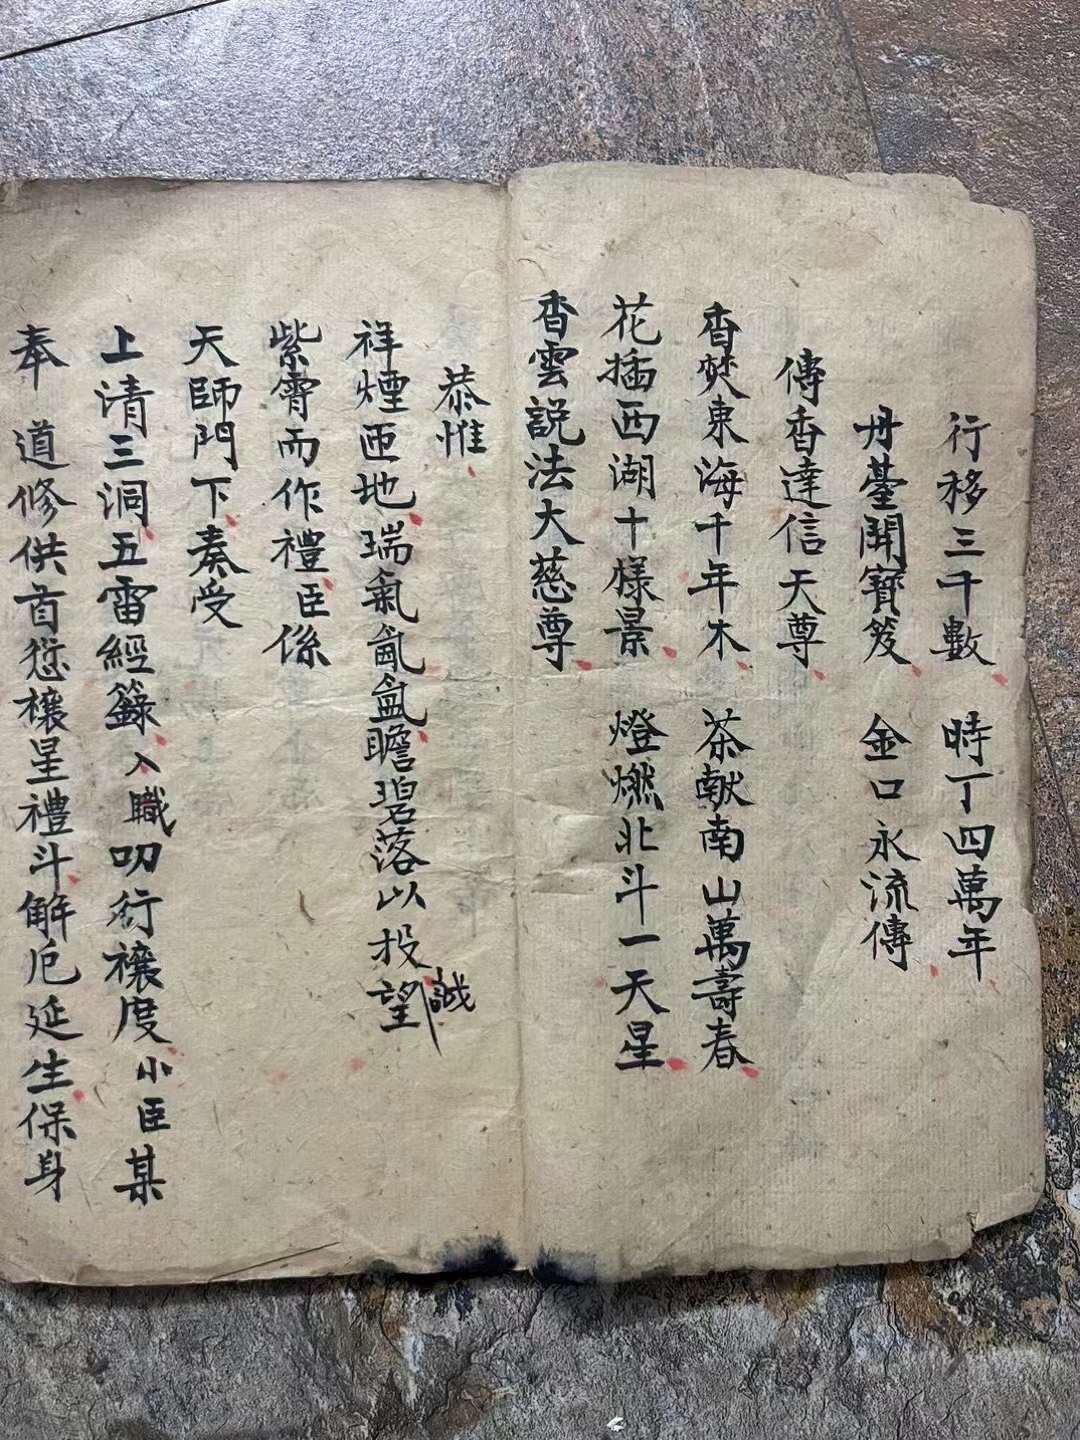 行移三千數　時丁四萬年
丹臺開寶笈　金口永流傳
傳香達信天尊
香焚東海千年木　茶献南山萬壽春
花插西湖十樣景　燈燃北斗一天星
香雲説法大慈尊
恭惟
祥煙匝地瑞氣氤氳瞻碧落以投誠望
紫霄而作禮臣係
天師門下奏受
上清三洞五雷經籙入職叨行禳度小臣某
奉　道修供首愆禳星禮斗解厄延生保身